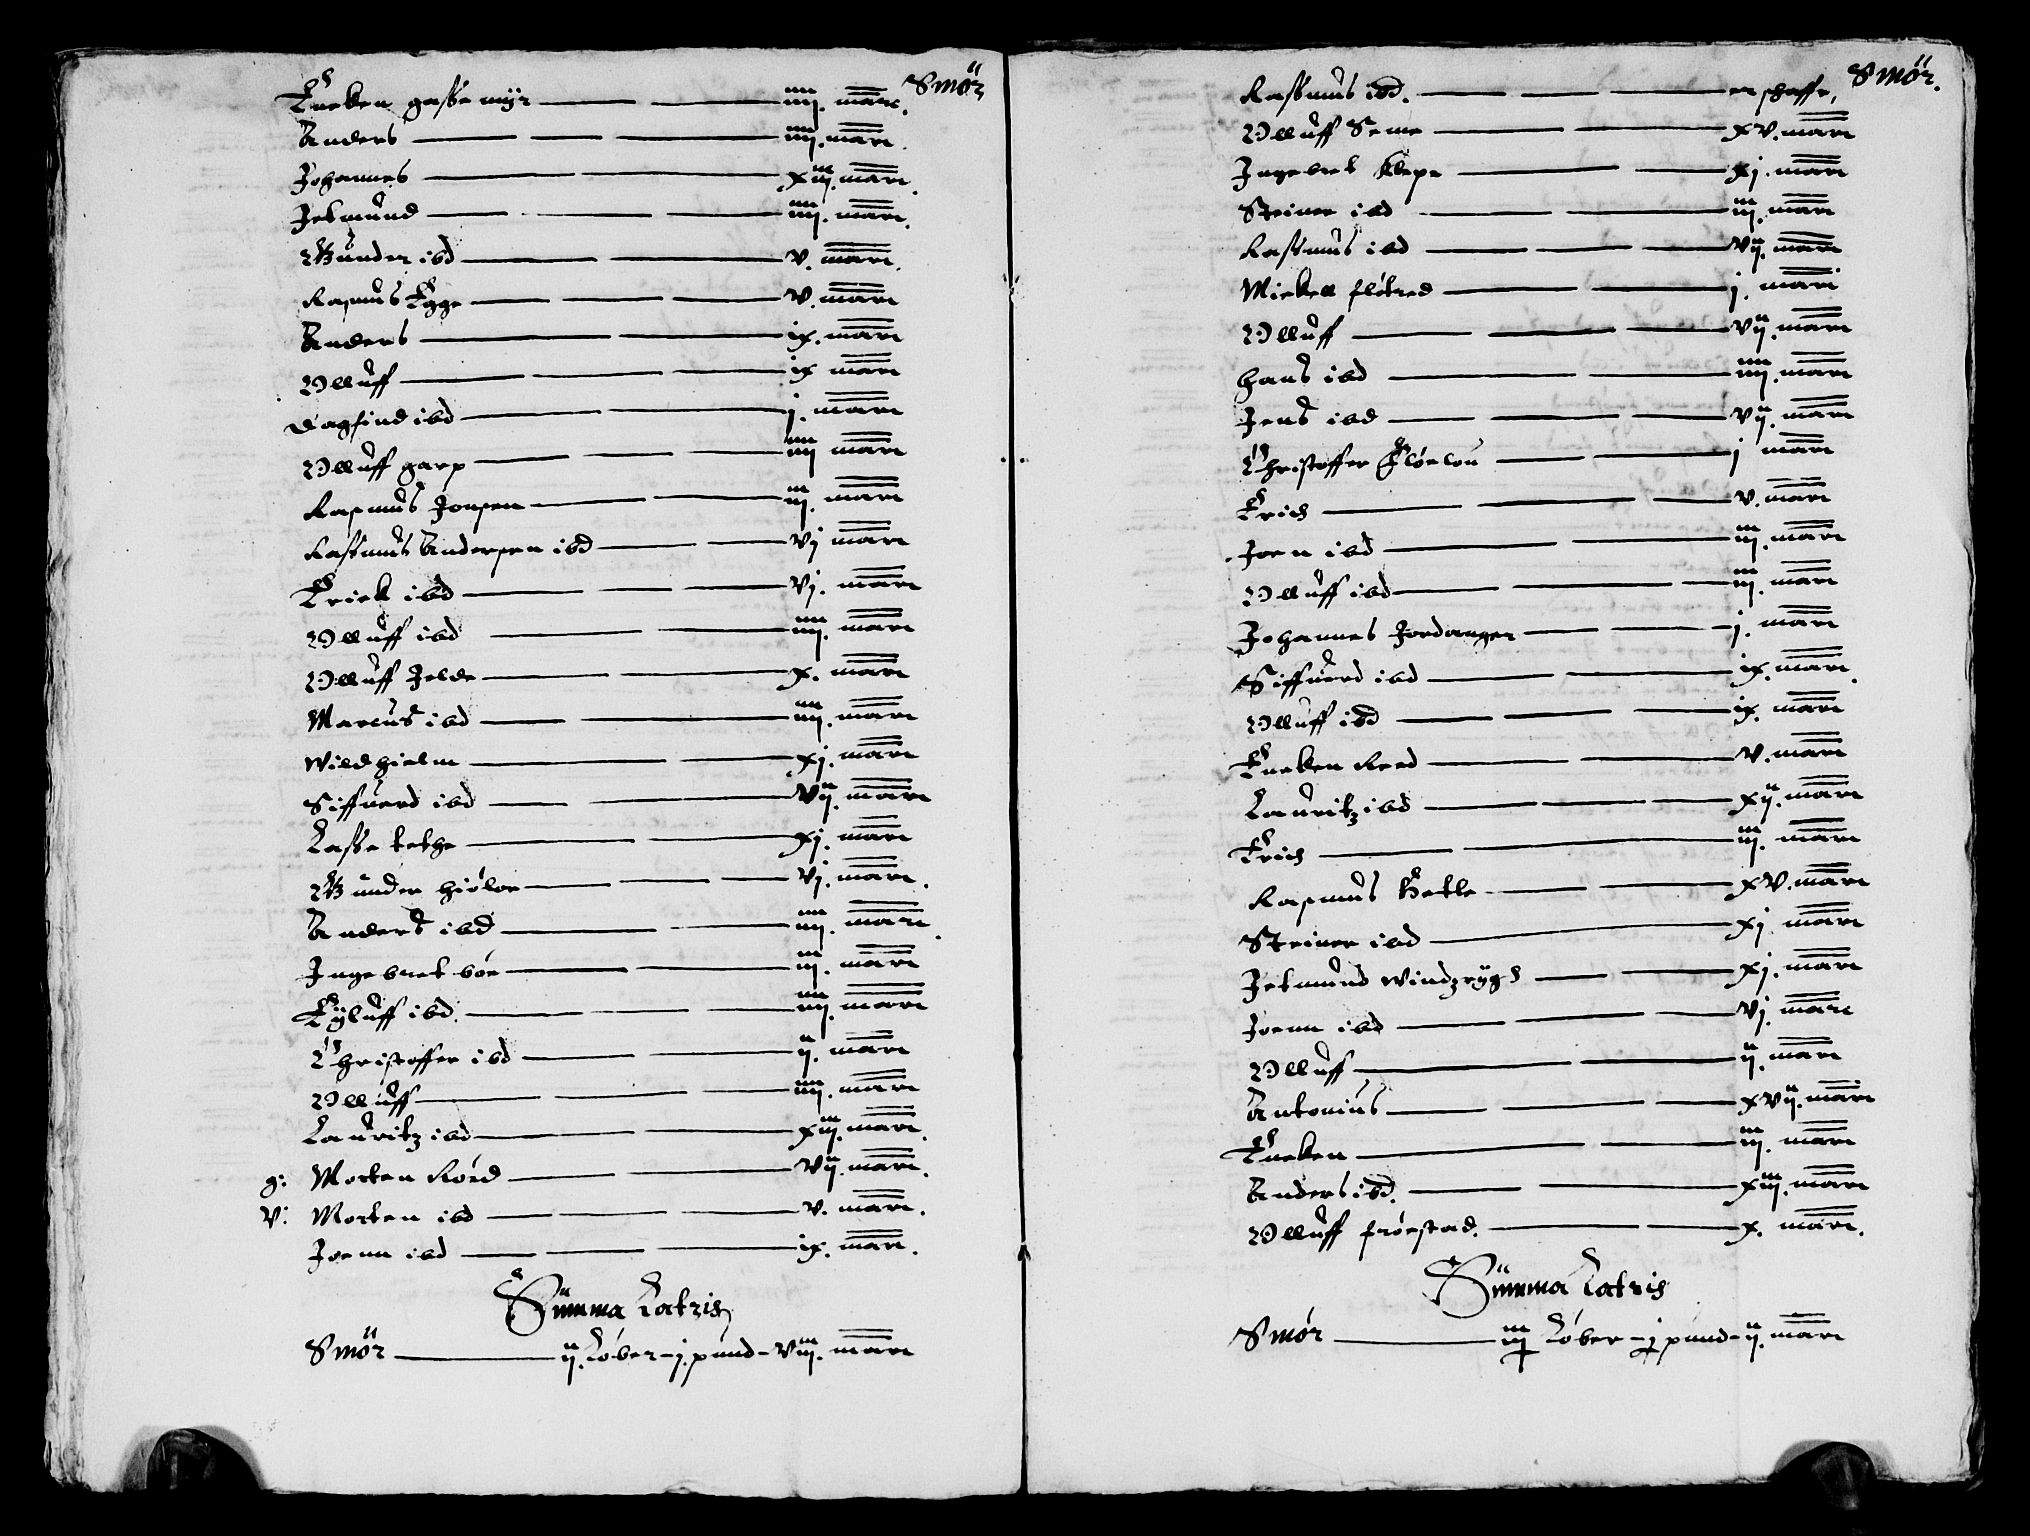 Smör
Encken gassemyr — — iiij. marc.
Anders — — — iiij. marc.
Johannes — — xiij. marc.
Jetmund — — — iiij. marc.
Gunder ibd — — — v. marc.
Rasmus Egge — — — v. marc
Anders — — ix. marc
Olluff — — — ix marc
Dagfind ibd — — j. marc
Olluff garp — — — iiij marc
Rasmus Jonsen — — iij. marc
Rassmus Andersen ibd — — vj marc
Erick ibd — — — vj. marc
Olluff ibd — — iiij. marc
Olluff Jelde — — — x. marc
Marcus ibd — — iiij. marc
Wildhielm — — xj. marc
Siffuerd ibd — — vij. marc
Lasse tethe — — xj. marc
Gunder hiøloe — — — vj. marc.
Anders ibd — — iiij. marc.
Ingebret bøe — — iij. marc
Eyluff ibd. — — — iiij. marc
Christoffer ibd — — ij. marc
Olluff — — — iiij. marc
Lauritz ibd — — xiij. marc.
g: Morten Rørd — — vij. marc.
V: Morten ibd — — — v. marc.
Joenn ibd — — — ix. marc.
Summa Latris
Smör — ij. Løber – j. pund – viij. marc
Smör.
Rassmus ibd. — — — er schaffe,
Olluff Seme — — xv. marc
Ingebret Klepe — — xj. marc
Steiner ibd — — — iij. marc
Rassmus ibd — — — vij. marc
Mickell fløtred — — j. marc
Olluff — — — vij. marc
Hans ibd — — iiij. marc
Jens ibd — — — vij. marc
Christoffer Fløelou — — j marc
Erich — — — v. marc
Joen ibd — — iij. marc
Olluff ibd — — — iij. marc
Johannes Jordanger — — — j. marc
Siffuerd ibd — — ix. marc.
Olluff ibd — — — ix. marc
Encken Reed — — v. marc
Lauritz ibd — — — xij. marc
Erich — — iij. marc
Rasmus Hetle — — xv. marc
Steiner ibd — xj marc
Jetmund Windzrygh — — xj. marc
Joenn ibd — — — vj. marc
Olluff — — ij. marc
Antonius — — — xvij. marc
Encken — — iij. marc
Anders ibd. — — xiij. marc
Olluff frøestad. — — x. marc.
Summa Latris
Smör — iij Løber – j pund – ij. marc